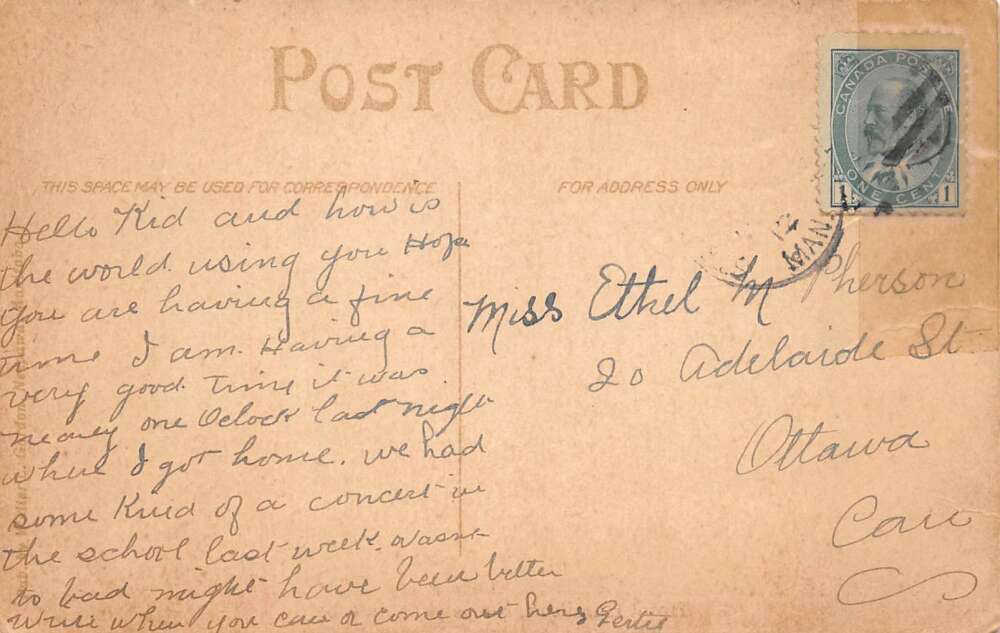 POST CARD
THIS SPACE MAY BE USED FOR CORRESPONDENCE
FOR ADDRESS ONLY
CANADA POSTAGE
1 ONE CENT 1
MAN.
Hello Kid and how is
the world using you Hope
you are having a fine
time I am. Having a
very good time it was
nearly one Oclock last night
when I got home. we had
some Kind of a concert in
the school last week. wasnt
to bad might have been better
Write when you can or come out here Gertie
Miss Ethel M Pherson
20 Adelaide St
Ottawa
Can